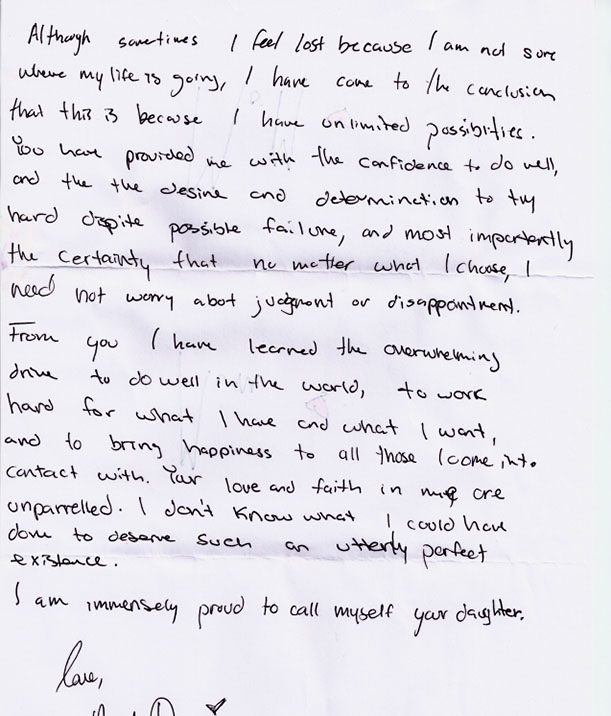 Although sometimes I feel lost because I am not sure
where my life is going, I have come to the conclusion
that this is because I have unlimited possibilities.
You have provided me with the confidence to do well,
and the the desire and determination to try
hard dispite possible failure, and most importently
the certainty that no matter what I choose, I
need not worry abot judgment or disappointment.
From you I have learned the overwhelming
drive to do well in the world, to work
hard for what I have and what I want,
and to bring happiness to all those I come into
contact with. Your love and faith in me are
unparrelled. I don't know what I could have
done to deserve such an utterly perfect
existence.
I am immensely proud to call myself your daughter.
Love,